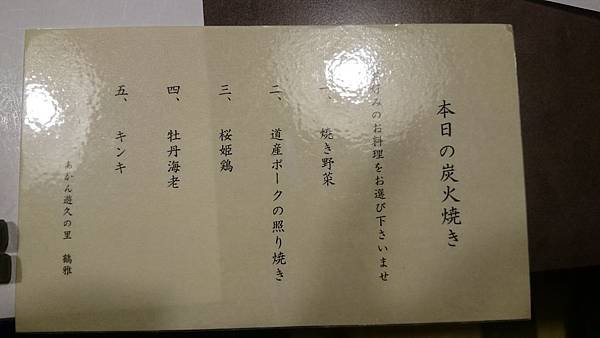 本日の炭火焼き
好みのお料理をお選び下さいませ
一、 焼き野菜
二、 道産ポークの照り焼き
三、 桜姫鶏
四、 牡丹海老
五、 キンキ
あかん遊久の里 鶴雅